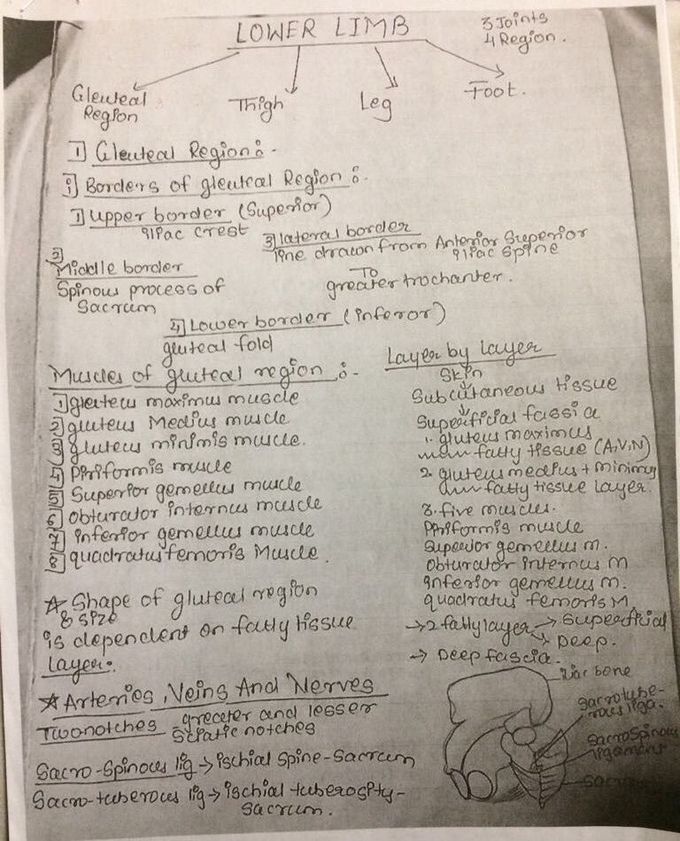 LOWER LIMB
3 Joints
4 Region.
Gleuteal Region
Thigh
Leg
Foot.
1] Gleuteal Region:-
i] Borders of gleuteal Region:-
1] upper border (Superior)
iliac crest
3] lateral border
line drawn from Anterior Superior
iliac Spine
To
greater trochanter.
2]
Middle border
Spinous process of
Sacrum
4] Lower border (inferor)
gluteal fold
Muscles of gluteal region:-
1] gleuteus maximus muscle
2] gluteus Medius muscle
3] gluteus minimis muscle.
4] Piriformis muscle
5] Superior gemellus muscle
6] obturator internus muscle
7] inferior gemellus muscle
8] quadratus femoris Muscle.
☆ Shape of gluteal region
& size
is dependent on fatty tissue
layer.
Layer by layer
Skin
↓
Subcutaneous tissue
↓
Superficial fassia
1. gluteus maximus
fatty tissue (A,V,N)
2. gluteus medius + minimus
fatty tissue layer.
3. five muscles.
Piriformis muscle
Superior gemellus m.
obturator internus M
inferior gemellus m.
quadratus femoris M
→ 2 fatty layer → Superficial
→ Deep.
→ Deep fascia.
☆ Arteries, Veins And Nerves
Two notches greater and lesser
Sciatic notches
Sacro-Spinous lig → ischial Spine-Sacrum
Sacro-tuberous lig → ischial tuberosity-
Sacrum.
bone
Sacrotube-
rous liga.
SacroSpinous
ligament